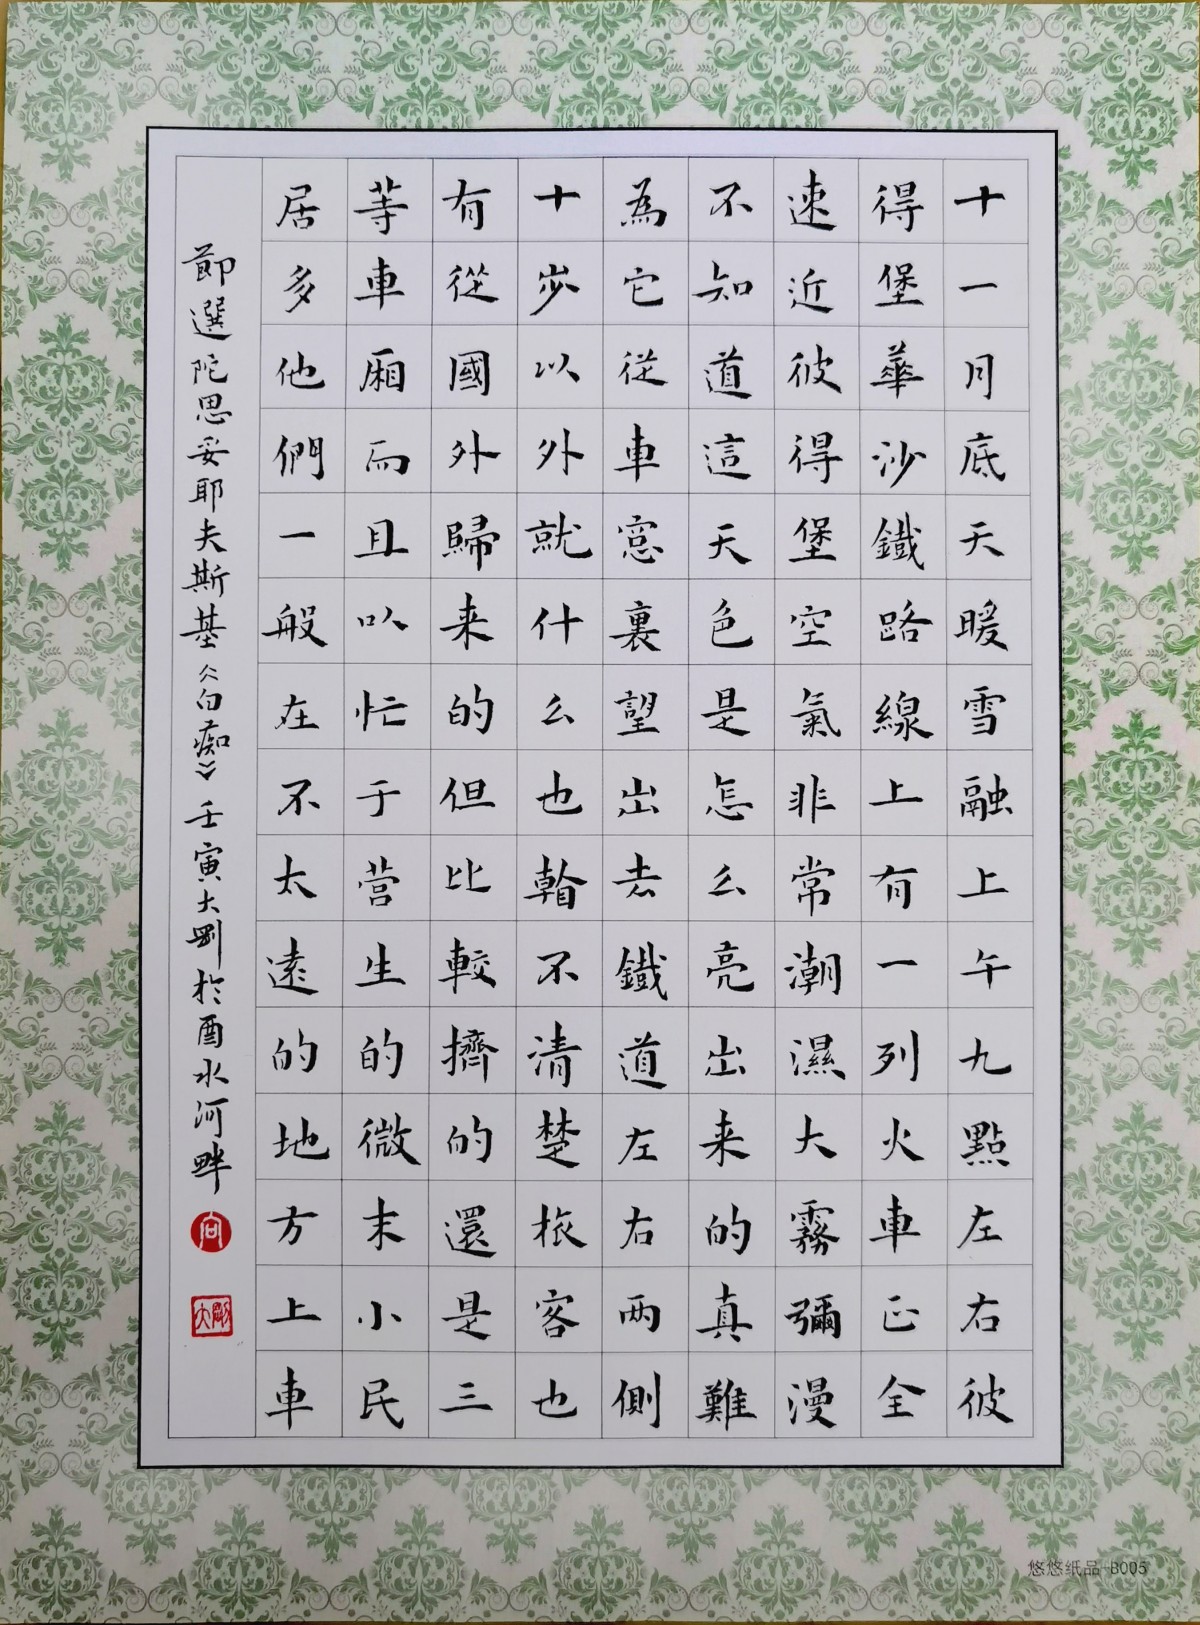 十一月底天暖雪融上午九點左右彼
得堡華沙鐵路線上有一列火車正全
速近彼得堡空氣非常潮濕大霧彌漫
不知道這天色是怎么亮出来的真難
為它從車窓裏望出去鐵道左右兩側
十步以外就什么也看不清楚旅客也
有從國外歸来的但比較擠的還是三
等車厢而且以忙于营生的微末小民
居多他們一般在不太遠的地方上車
節選陀思妥耶夫斯基《白痴》壬寅大剛於酉水河畔
向
大剛
悠悠纸品 B005